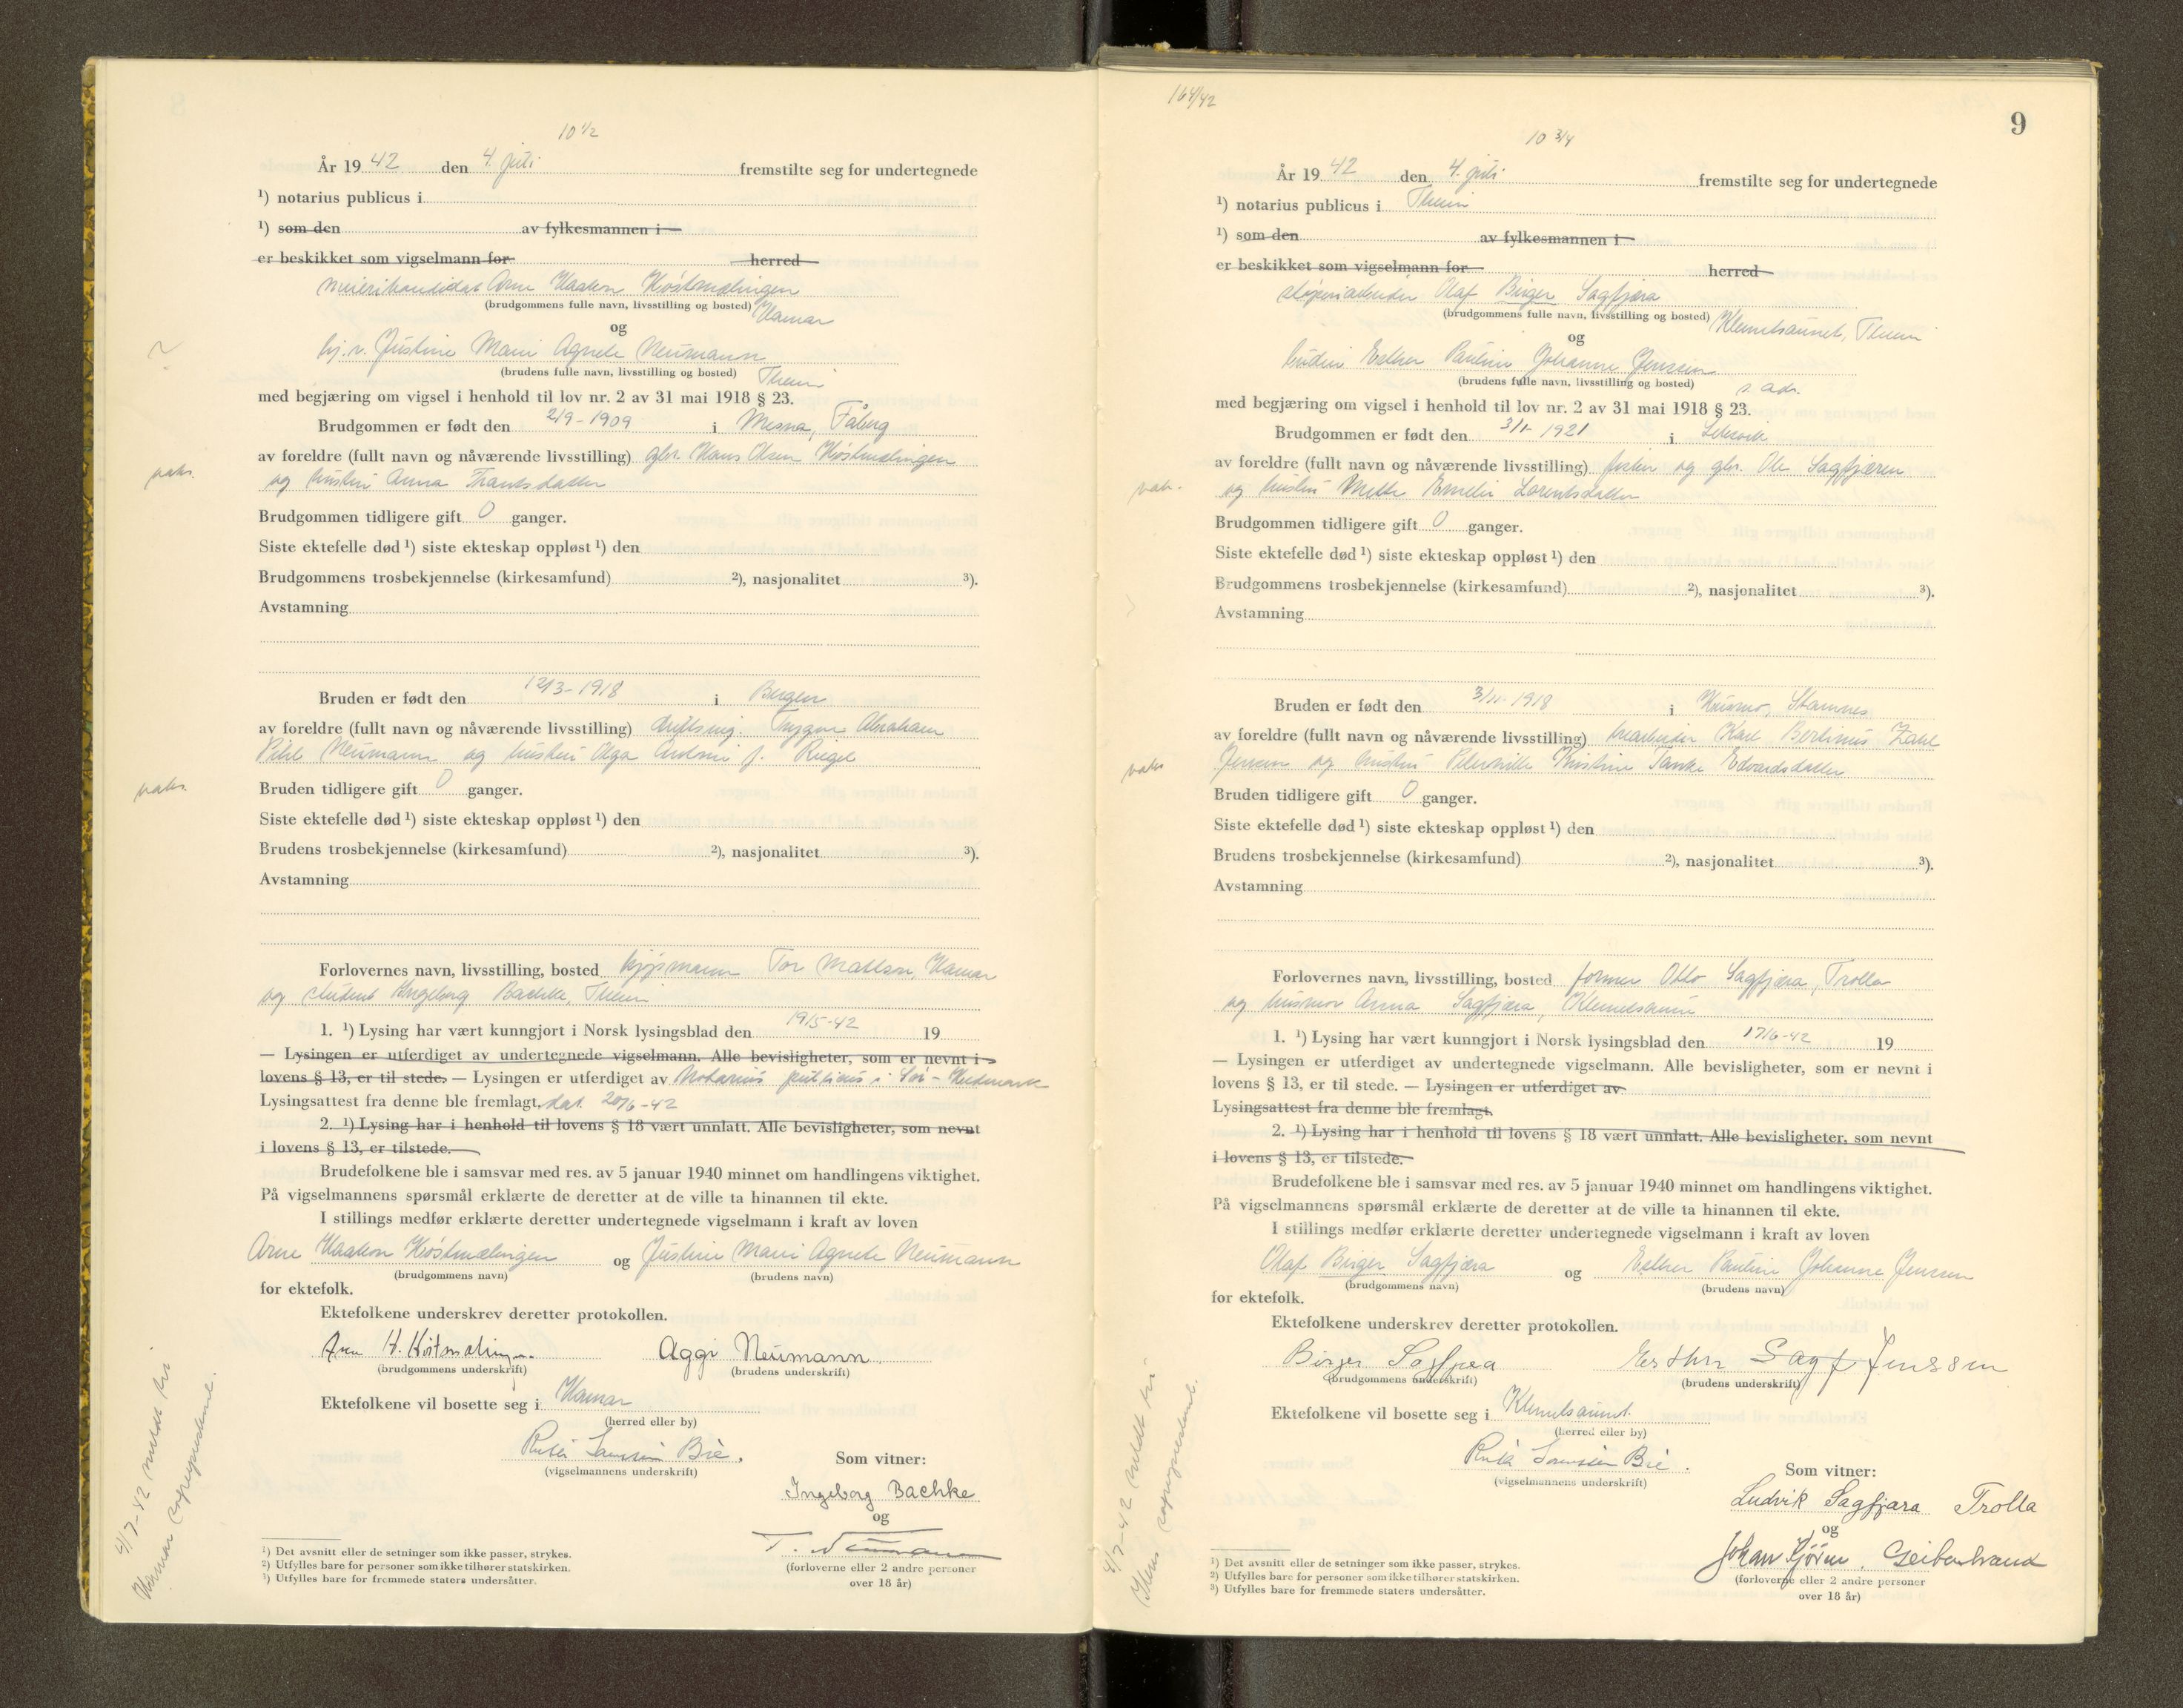 10 1/2
År 19 42 den 4. juli fremstilte seg for undertegnede
¹) notarius publicus i
¹) som den av fylkesmannen i
er beskikket som vigselmann for herred
meierikandidat Arne Haakon Kióstmælingen
(brudgommens fulle navn, livsstilling og bosted) Hamar
og
hj.v. Justine Marie Agnete Neumann
(brudens fulle navn, livsstilling og bosted) Theim
med begjæring om vigsel i henhold til lov nr. 2 av 31 mai 1918 § 23.
Brudgommen er født den 2/9-1909 i Mesna, Fåberg
av foreldre (fullt navn og nåværende livsstilling) gbr. Hans Olsen Kióstmælingen
vaks.
og hustru Anna Frantsdatter
Brudgommen tidligere gift 0 ganger.
Siste ektefelle død ¹) siste ekteskap oppløst ¹) den
Brudgommens trosbekjennelse (kirkesamfund) ²), nasjonalitet ³).
Avstamning
Bruden er født den 12/3-1918 i Bergen
av foreldre (fullt navn og nåværende livsstilling) driftsing. Trygve Abraham
Pihl Neumann og hustru Olga f. Riegel
vaks.
Bruden tidligere gift 0 ganger.
Siste ektefelle død ¹) siste ekteskap oppløst ¹) den
Brudens trosbekjennelse (kirkesamfund) ²), nasjonalitet ³).
Avstamning
Forlovernes navn, livsstilling, bosted kjøpmann Tor Mattson, Hamar
og student Ingeborg Bachke, Theim
1. ¹) Lysing har vært kunngjort i Norsk lysingsblad den 19/5-42 19
— Lysingen er utferdiget av undertegnede vigselmann. Alle bevisligheter, som er nevnt i
lovens § 13, er til stede. — Lysingen er utferdiget av Notarius publicus i Sør-Hedmark
Lysingsattest fra denne ble fremlagt, dat. 20/6-42
2. ¹) Lysing har i henhold til lovens § 18 vært unnlatt. Alle bevisligheter, som nevnt
i lovens § 13, er tilstede.
Brudefolkene ble i samsvar med res. av 5 januar 1940 minnet om handlingens viktighet.
På vigselmannens spørsmål erklærte de deretter at de ville ta hinannen til ekte.
I stillings medfør erklærte deretter undertegnede vigselmann i kraft av loven
Arne Haakon Kióstmælingen og Justine Marie Agnete Neumann
(brudgommens navn) (brudens navn)
for ektefolk.
Ektefolkene underskrev deretter protokollen.
Arne H. Kióstmælingen. Aggi Neumann
(brudgommens underskrift) (brudens underskrift)
Ektefolkene vil bosette seg i Hamar
(herred eller by)
Ruth Sørenssen Bie.
(vigselmannens underskrift)
Som vitner:
Ingeborg Bachke
og
T. Neumann
(forloverne eller 2 andre personer
over 18 år)
4/7-42 meldt til
Hamar sogneprestemb.
¹) Det avsnitt eller de setninger som ikke passer, strykes.
²) Utfylles bare for personer som ikke tilhører statskirken.
³) Utfylles bare for fremmede staters undersåtter.
164/42
9
10 3/4
År 19 42 den 4. juli fremstilte seg for undertegnede
¹) notarius publicus i Theim
¹) som den av fylkesmannen i
er beskikket som vigselmann for herred
sliperiarbeider Olaf Birger Sagfjæra
(brudgommens fulle navn, livsstilling og bosted) Klemetsaunet, Theim
og
Esther Pauline Johanne Jenssen
(brudens fulle navn, livsstilling og bosted) s. adr.
med begjæring om vigsel i henhold til lov nr. 2 av 31 mai 1918 § 23.
Brudgommen er født den 3/1-1921 i Leksvik
av foreldre (fullt navn og nåværende livsstilling) fisker og gbr. Ole Sagfjæren
vaks.
og hustru Mette Emelie Lorentsdatter
Brudgommen tidligere gift 0 ganger.
Siste ektefelle død ¹) siste ekteskap oppløst ¹) den
Brudgommens trosbekjennelse (kirkesamfund) ²), nasjonalitet ³).
Avstamning
Bruden er født den 3/11-1918 i Husmo, Stamnes
av foreldre (fullt navn og nåværende livsstilling) Karl Bertinus Zahl
vaks
Jenssen og hustru Kristine Tanke Edvardsdatter
Bruden tidligere gift 0 ganger.
Siste ektefelle død ¹) siste ekteskap oppløst ¹) den
Brudens trosbekjennelse (kirkesamfund) ²), nasjonalitet ³).
Avstamning
Forlovernes navn, livsstilling, bosted former Otto Sagfjæra, Trolla
og husmor Anna Sagfjæra, Klemetsaune
1. ¹) Lysing har vært kunngjort i Norsk lysingsblad den 17/6-42 19
— Lysingen er utferdiget av undertegnede vigselmann. Alle bevisligheter, som er nevnt i
lovens § 13, er til stede. — Lysingen er utferdiget av
Lysingsattest fra denne ble fremlagt.
2. ¹) Lysing har i henhold til lovens § 18 vært unnlatt. Alle bevisligheter, som nevnt
i lovens § 13, er tilstede.
Brudefolkene ble i samsvar med res. av 5 januar 1940 minnet om handlingens viktighet.
På vigselmannens spørsmål erklærte de deretter at de ville ta hinannen til ekte.
I stillings medfør erklærte deretter undertegnede vigselmann i kraft av loven
Olaf Birger Sagfjæra og Esther Pauline Johanne Jenssen
(brudgommens navn) (brudens navn)
for ektefolk.
Ektefolkene underskrev deretter protokollen.
Birger Sagfjæra Esther Sagf Jenssen
(brudgommens underskrift) (brudens underskrift)
Ektefolkene vil bosette seg i Klemetsaunet.
(herred eller by)
Ruth Sørenssen Bie.
(vigselmannens underskrift)
Som vitner:
Ludvik Sagfjæra Trolla
og
Johan Kjøren, Geitastrand
(forloverne eller 2 andre personer
over 18 år)
4/7-42 meldt til
Ilens sogneprestemb.
¹) Det avsnitt eller de setninger som ikke passer, strykes.
²) Utfylles bare for personer som ikke tilhører statskirken.
³) Utfylles bare for fremmede staters undersåtter.